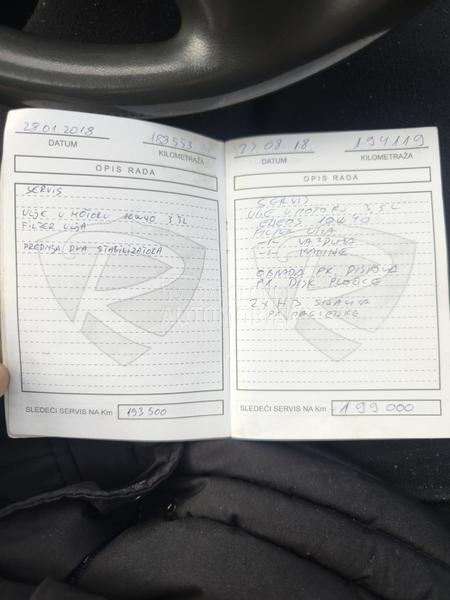 28.01.2018
189553
DATUM
KILOMETRAŽA
OPIS RADA
SERVIS
ULJE U MOTORU 10W40 3,5L
FILTER ULJA
PREDNJA DVA STABILIZATORA
SLEDEĆI SERVIS NA Km
193 500
08.18
194119
DATUM
KILOMETRAŽA
OPIS RADA
SERVIS
ULJE U MOTORU 3,5L
10W40
FILTER ULJA
-11- VAZDUHA
-11- KABINE
OBRADA PR. DISKOVA
PR. DISK PLOČICE
2x H3 SIJALICA
PR. MAGLENKE
SLEDEĆI SERVIS NA Km
199 000